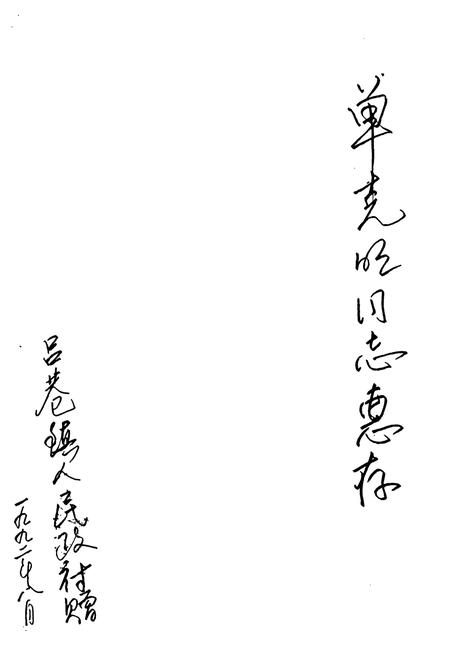 单克同志惠存
吕巷镇人民政府赠
一九九二年八月